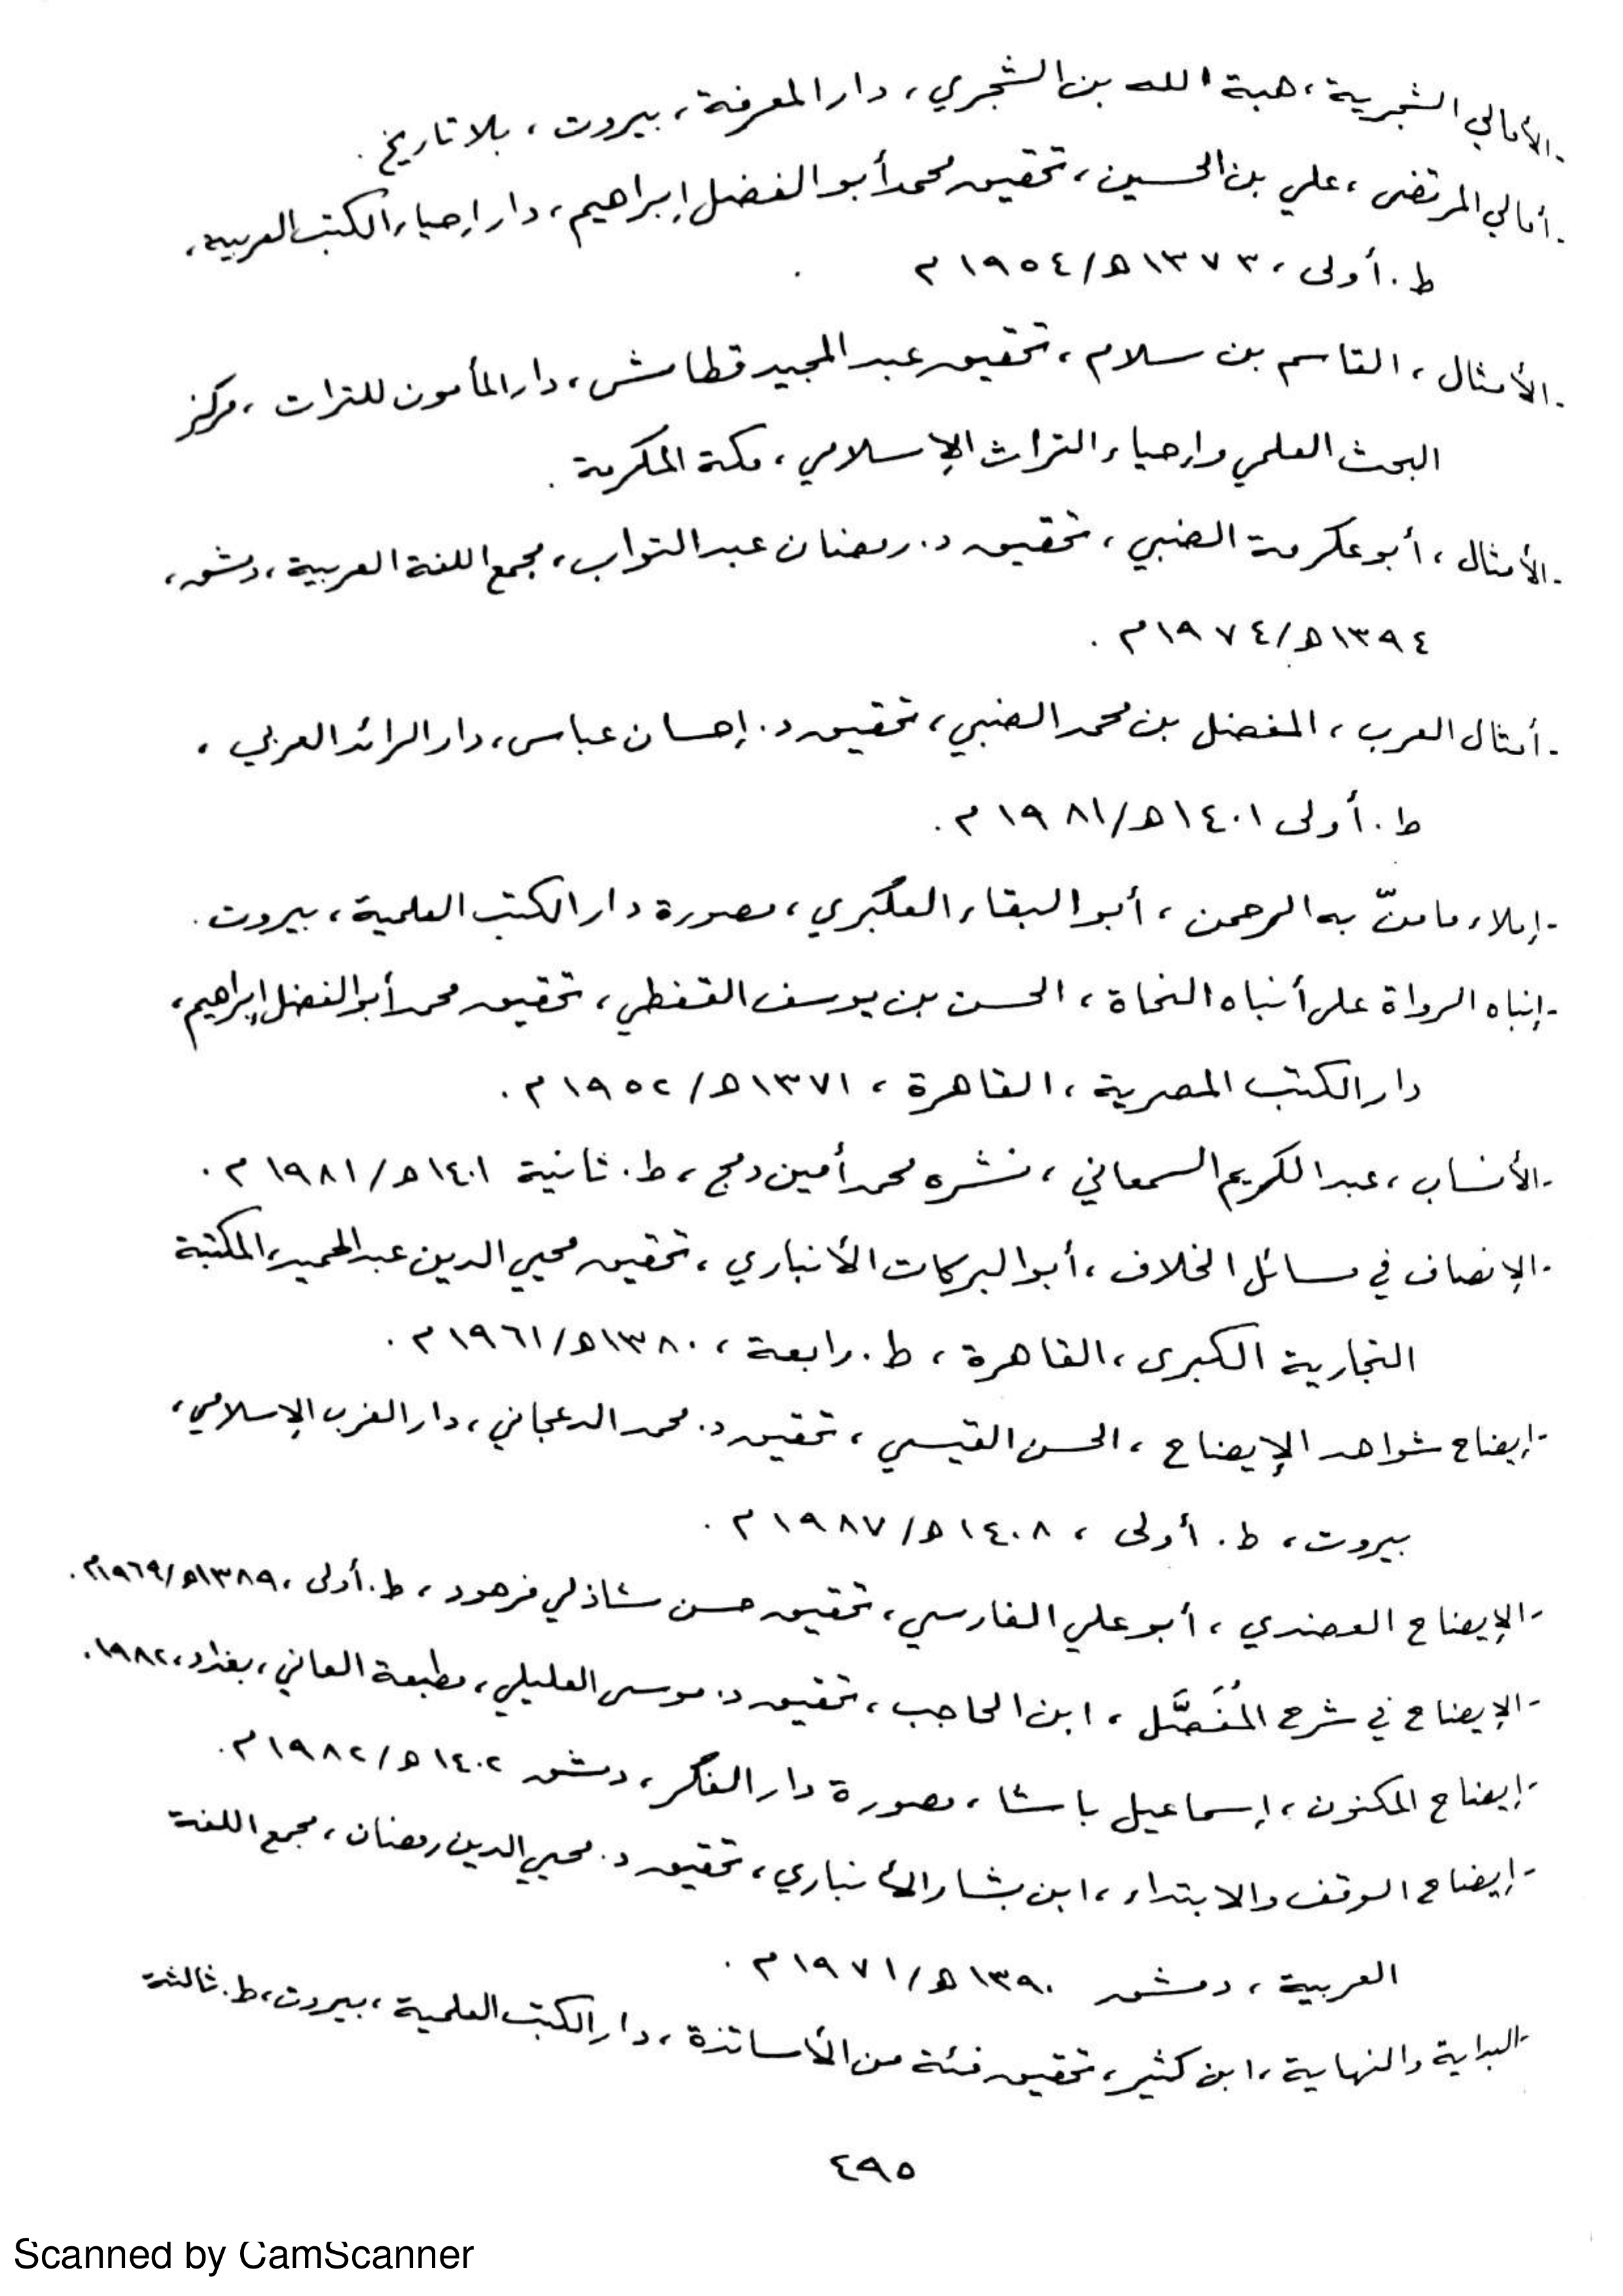 - الأمالي الشجرية، هبة الله بن الشجري، دار المعرفة، بيروت، بلا تاريخ.
- أمالي المرتضى، علي بن الحسين، تحقيق محمد أبو الفضل إبراهيم، دار إحياء الكتب العربية،
ط. أولى، ١٣٧٣هـ/١٩٥٤م
- الأمثال، القاسم بن سلام، تحقيق عبد المجيد قطامش، دار المأمون للتراث، مركز
البحث العلمي وإحياء التراث الإسلامي، مكة المكرمة.
- الأمثال، أبو عكرمة الضبي، تحقيق د. رمضان عبد التواب، مجمع اللغة العربية، دمشق،
١٣٩٤هـ/١٩٧٤م.
- أمثال العرب، المفضل بن محمد الضبي، تحقيق د. إحسان عباس، دار الرائد العربي،
ط. أولى ١٤٠١هـ/١٩٨١م.
- إملاء ما منّ به الرحمن، أبو البقاء العكبري، مصورة دار الكتب العلمية، بيروت.
- إنباه الرواة على أنباه النحاة، الحسن بن يوسف القفطي، تحقيق محمد أبو الفضل إبراهيم،
دار الكتب المصرية، القاهرة، ١٣٧١هـ/١٩٥٢م.
- الأنساب، عبد الكريم السمعاني، نشره محمد أمين دمج، ط. ثانية ١٤٠١هـ/١٩٨١م.
- الإنصاف في مسائل الخلاف، أبو البركات الأنباري، تحقيق محيي الدين عبد الحميد، المكتبة
التجارية الكبرى، القاهرة، ط. رابعة، ١٣٨٠هـ/١٩٦١م.
- إيضاح شواهد الإيضاح، الحسن القيسي، تحقيق د. محمد الدعجاني، دار الغرب الإسلامي،
بيروت، ط. أولى، ١٤٠٨هـ/١٩٨٧م.
- الإيضاح العضدي، أبو علي الفارسي، تحقيق حسن شاذلي فرهود، ط. أولى، ١٣٨٩هـ/١٩٦٩م.
- الإيضاح في شرح المُفَصَّل، ابن الحاجب، تحقيق د. موسى العليلي، مطبعة العاني، بغداد، ١٩٨٢.
- إيضاح المكنون، إسماعيل باشا، مصورة دار الفكر، دمشق ١٤٠٢هـ/١٩٨٢م.
- إيضاح الوقف والابتداء، ابن بشار الأنباري، تحقيق د. محيي الدين رمضان، مجمع اللغة
العربية، دمشق ١٣٩٠هـ/١٩٧١م.
- البداية والنهاية، ابن كثير، تحقيق فئة من الأساتذة، دار الكتب العلمية، بيروت، ط. ثالثة
٤٩٥
Scanned by CamScanner